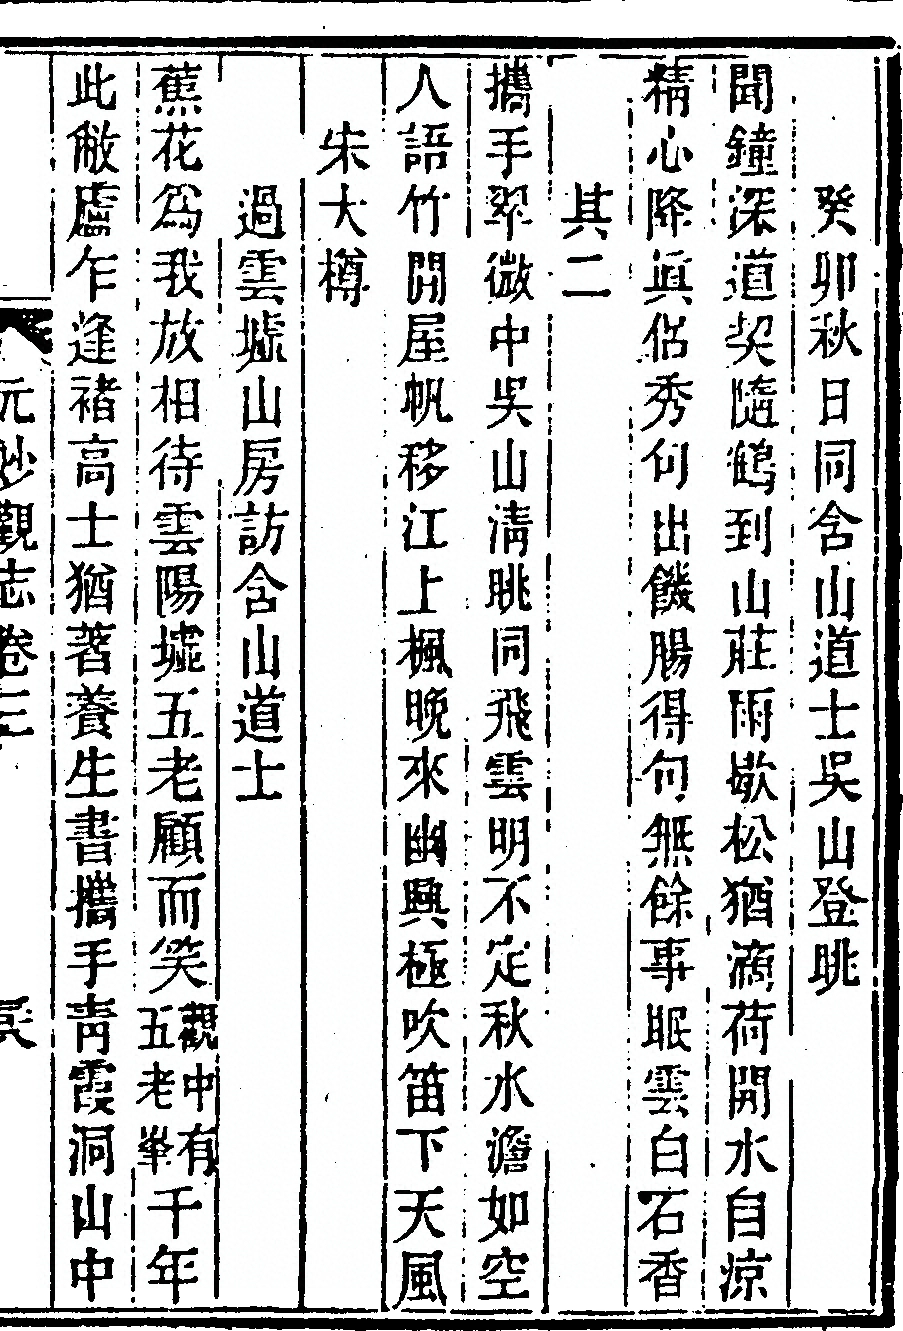 癸卯秋日同含山道士吳山登眺
聞鐘深道契隨鶴到山莊雨歇松猶滴荷開水自涼
精心降眞侶秀句出饑腸得句無餘事眠雲白石香
其二
攜手翠微中吳山淸眺同飛雲明不定秋水澹如空
人語竹間屋帆移江上楓晚來幽興極吹笛下天風
朱大樽
過雲墟山房訪含山道士
蕉花爲我放相待雲陽墟五老顧而笑觀中有五老峯千年
此敝廬乍逢褚高士猶著養生書攜手靑霞洞山中
元妙觀志卷三